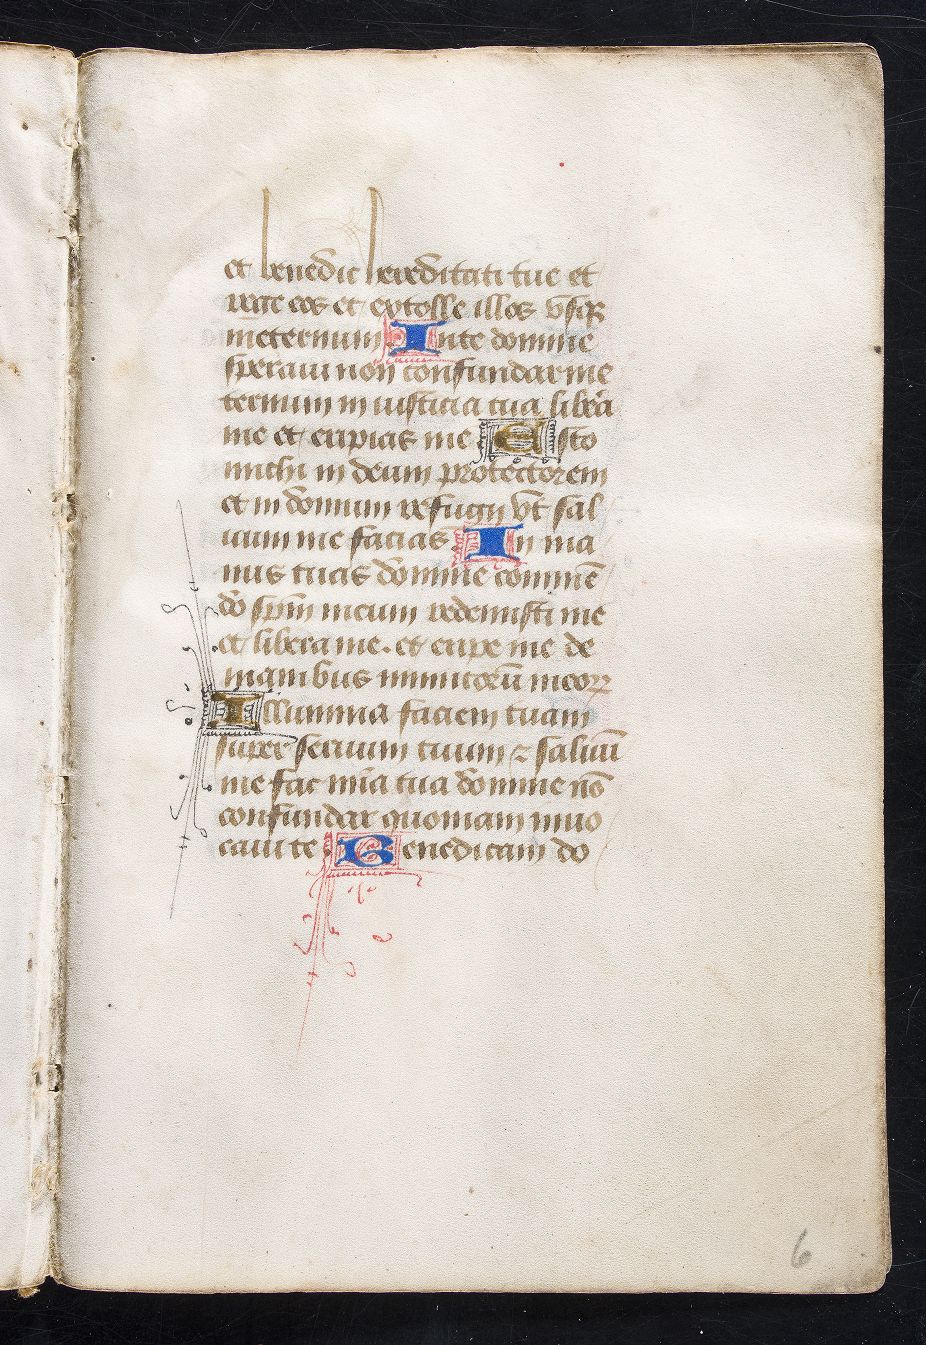 et benedic hereditati tue et
rege eos et extolle illos vsqꝫ
ineternum In te domine
speraui non confundar me
ternum in iusticia tua libera
me et eripias me Esto
michi in deum protectorem
et in domum refugij vt sal
uum me facias In ma
nus tuas domine commē
do sp̄m meum redemisti me
et libera me. et eripe me de
manibus inimicorū meoꝝ
Illumina faciem tuam
super seruum tuum ⁊ saluū
me fac mīa tua domine nō
confundar quoniam inuo
caui te Benedicam do
6